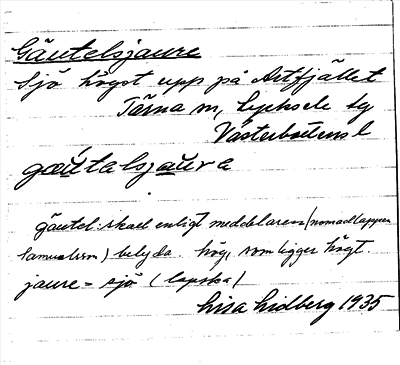 Gäutelsjaure
Sjö högst upp på Artfjället
Tärna sn, Lycksele lg
Västerbottens l
gœutalsjaura
gäutel: skall enligt meddelaren (nomadlappen
Samuelsson) betyda hög, som ligger högt.
jaure = sjö (lapska)
Lisa Lidberg 1935